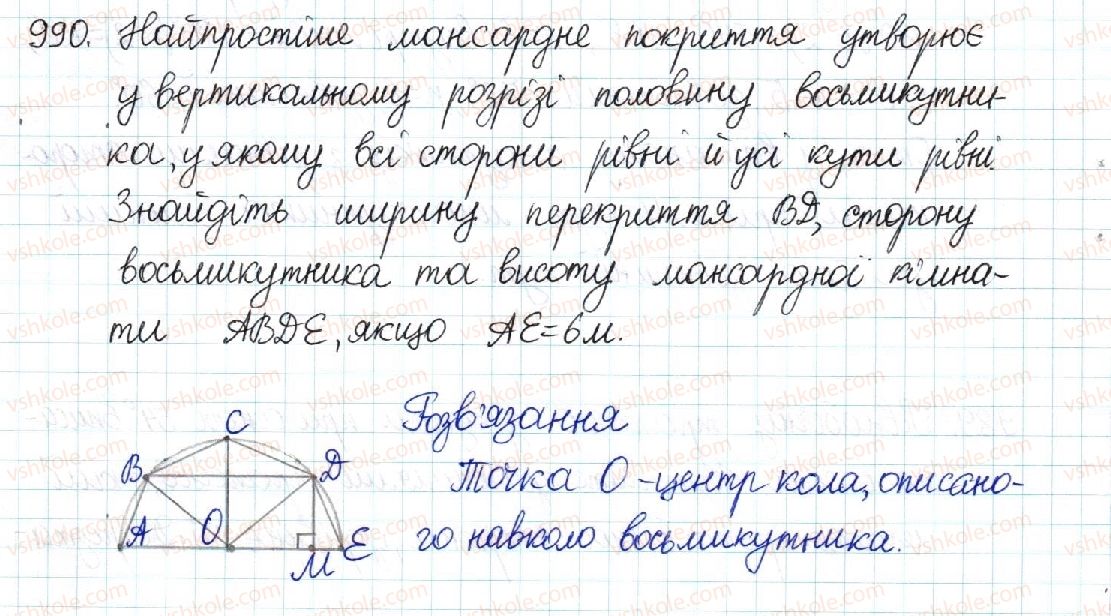 990. Найпростіше мансардне покриття утворює
у вертикальному розрізі половину восьмикутни-
ка, у якому всі сторони рівні й усі кути рівні.
Знайдіть ширину перекриття BD, сторону
восьмикутника та висоту мансардної кімна-
ти ABDE, якщо AE=6м.
Розв'язання
C
B
D
Точка O - центр кола, описано-
A
O
E
го навколо восьмикутника.
M